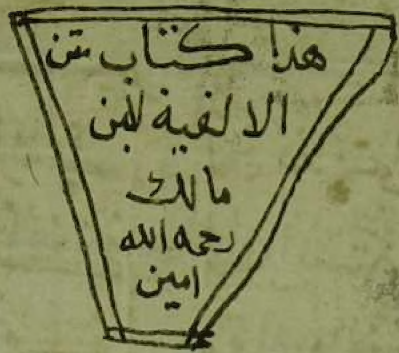 هذا كتاب متن
الالفية لابن
مالك
رحمه الله
امين